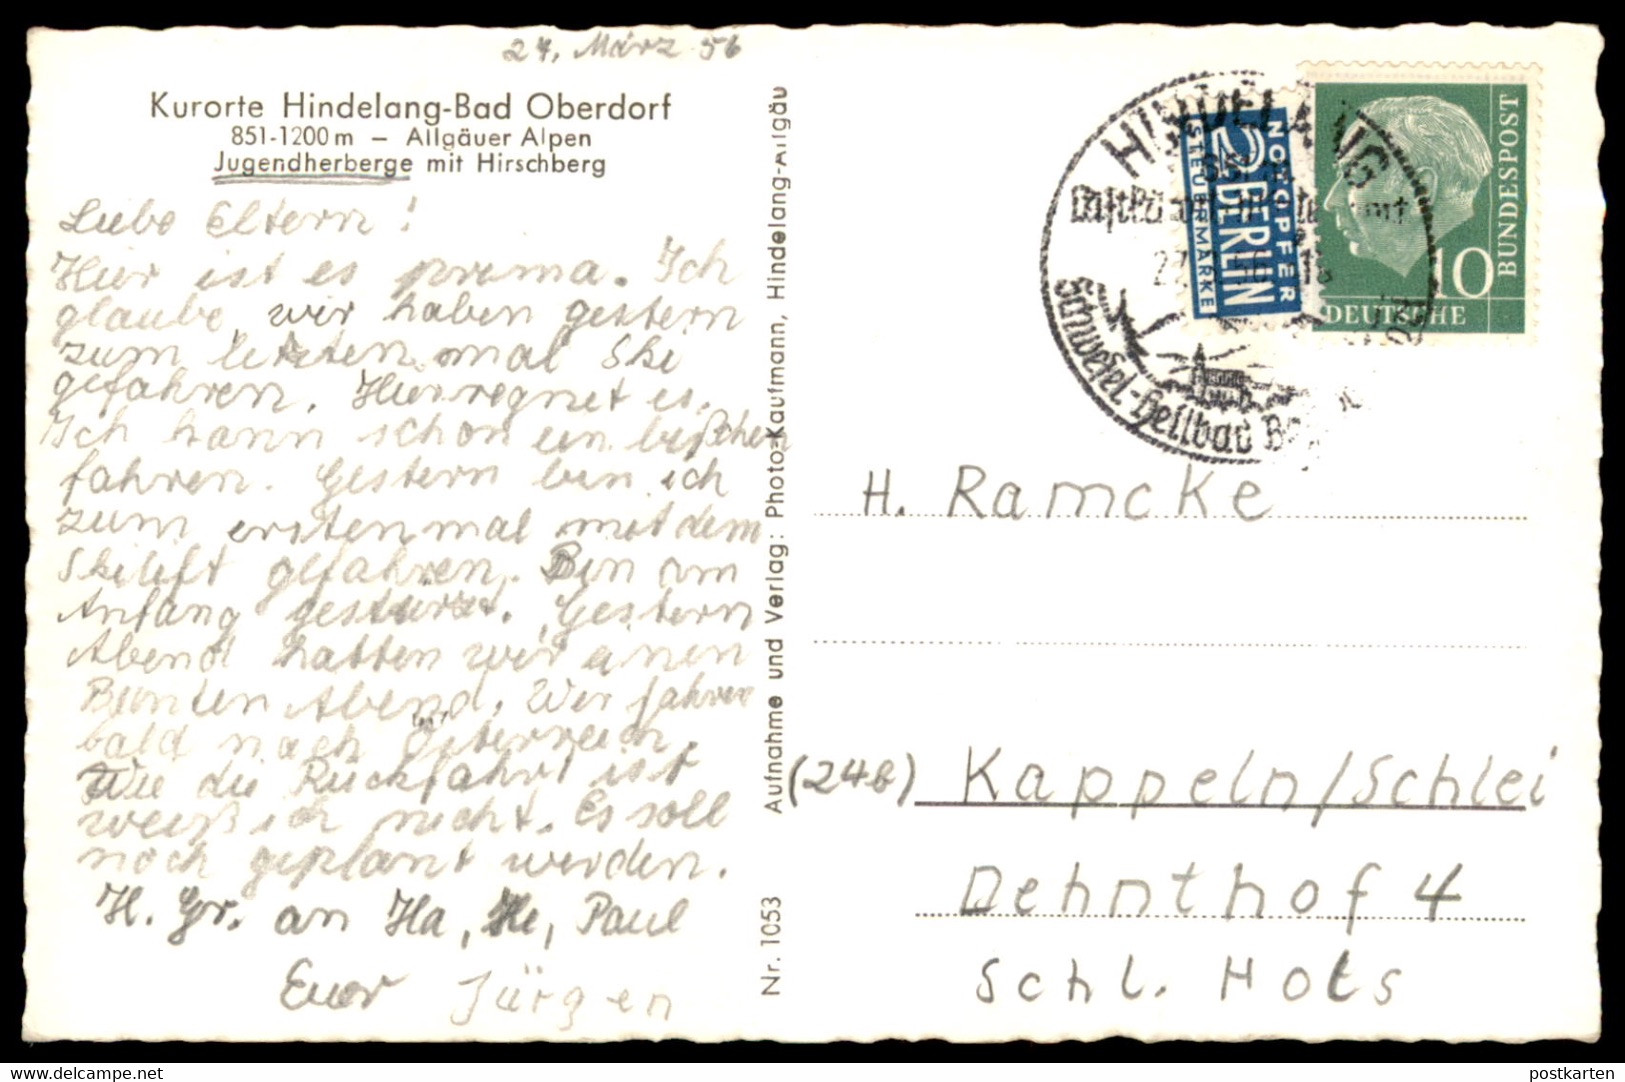 27. März 56
Kurorte Hindelang-Bad Oberdorf
851-1200 m – Allgäuer Alpen
Jugendherberge mit Hirschberg
Liebe Eltern!
Hier ist es prima. Ich
glaube, wir haben gestern
zum letzten mal Ski
gefahren. Hier regnet es.
Ich kann schon ein bißchen
fahren. Gestern bin ich
zum erstenmal mit dem
Skilift gefahren. Bin am
Anfang gestürzt. Gestern
Abend hatten wir einen
Bunten Abend. Wir fahren
bald nach Österreich.
Wie die Rückfahrt ist
weiß ich nicht. Es soll
noch geplant werden.
H. Gr. an Ha, He, Paul
Euer Jürgen
Nr. 1053 Aufnahme und Verlag: Photo-Kaufmann, Hindelang-Allgäu
HINDELANG
851 m
Schwefel-Heilbad
NOTOPFER
2 BERLIN
STEUERMARKE
10
DEUTSCHE
BUNDESPOST
H. Ramcke
(24b) Kappeln/Schlei
Dehnthof 4
Schl. Hols
www.delcampe.net
postkarten